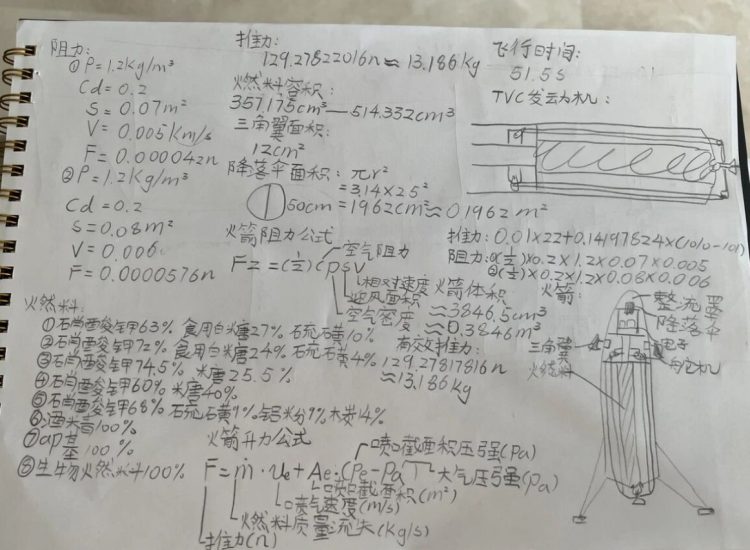 阻力:
①P=1.2Kg/m³
Cd=0.2
S=0.07m²
V=0.005Km/s
F=0.000042n
②P=1.2Kg/m³
Cd=0.2
S=0.08m²
V=0.006
F=0.0000576n
推力:
129.27822016n≈13.186kg
燃料容积:
357.175cm³—514.332cm³
三角翼面积:
12cm²
降落伞面积: πr²
50cm
=3.14×25²
=1962cm²≈0.1962m²
火箭阻力公式
Fz=(½)cpsv
空气阻力
相对速度
迎风面积
空气密度
火箭体积
≈3846.5cm³
≈0.3846m³
有效推力:
129.27817816n
≈13.186Kg
飞行时间:
51.5s
TVC发动机:
推力:0.01×22+0.14197824×(1010-101)
阻力:①(½)×0.2×1.2×0.07×0.005
②(½)×0.2×1.2×0.08×0.006
火箭:
整流罩
降落伞
电子
舵机
三角翼
燃料
火燃料:
①石肖酉夋钾63% 食用白米唐27% 石㐬石黄10%
②石肖酉夋钾72% 食用白米唐24% 石㐬石黄4%
③石肖酉夋钾74.5% 米唐25.5%
④石肖酉夋钾60% 米唐40%
⑤石肖酉夋钾68% 石㐬石黄9% 铝米分9% 木炭14%
⑥酒米青100%
⑦ap基100%
⑧生物火燃料100%
火箭升力公式
F=ṁ·ve+Ae·(Pe-Pa)
喷口截面积压强(Pa)
大气压强(Pa)
喷口截面积(m²)
喷气速度(m/s)
火燃料质量流失(Kg/s)
推力(n)